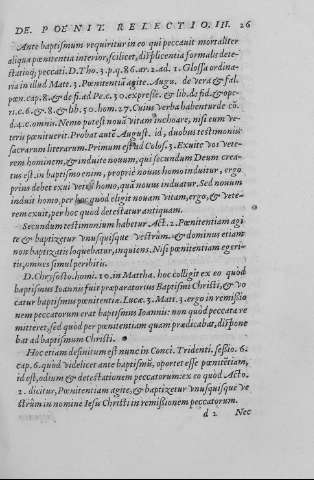 DE. POENIT. RELECTIO. III. 26
Ante baptismum requiritur in eo qui peccauit mortaliter
aliqua pœnitentia interior, scilicet, displicentia formalis dete-
statioq; peccati. D. Tho. 3. p. q. 86. ar. 2. ad. 1. Glossa ordina-
ria in illud Mat. 3. Pœnitentiã agite. Augu. de vera & fal.
pœn. cap. 8. & de fi. ad Pe. c. 30. expresse. & lib. de fid. & ope-
ri. c. 6. & 8. & lib. 50. hom. 27. Cuius verba habentur de cõ.
d. 4. c. omnis. Nemo potest nouã vitam inchoare, nisi eum ve-
teris pœnituerit. Probat autẽ August. id, duobus testimonijs
sacrarum literarum. Primum est ad Colos. 3. Exuite vos vete-
rem hominem, & induite nouum, qui secundum Deum crea-
tus est. in baptismo enim, proprie nouus homo induitur, ergo
prius debet exui vetus homo, quã nouus induatur. Sed nouum
induit homo, per hoc quod eligit nouam vitam, ergo, & vete-
rem exuit, per hoc quod detestatur antiquam.
Secundum testimonium habetur Act. 2. Pœnitentiam agi
te & baptizetur vnusquisque vestrũm. & dominus etiam
non baptizatis loquebatur, inquiens. Nisi pœnitentiam egeri-
tis, omnes simul peribitis.
D. Chrysosto. homi. 10. in Mattha. hoc colligit ex eo quod
baptismus Ioannis fuit præparatorius Baptismi Christi, & vo
catur baptismus pœnitentiæ. Luca. 3. Mat. 3. ergo in remissio
nem peccatorum erat baptismus Ioannis: non quod peccata re
mitteret, sed quod per pœnitentiam quam prædicabat, dispone
bat ad baptismum Christi.
Hoc etiam definitum est nunc in Conci. Tridenti. sessio. 6.
cap. 6. quod videlicet ante baptismũ, oportet esse pœnitẽtiam,
id est, odium & detestationem peccatorum: ex eo quod Acto.
2. dicitur, Pœnitentiam agite, & baptizetur vnusquisque ve
strũm in nomine Iesu Christi in remissionem peccatorum.
d 2 Nec